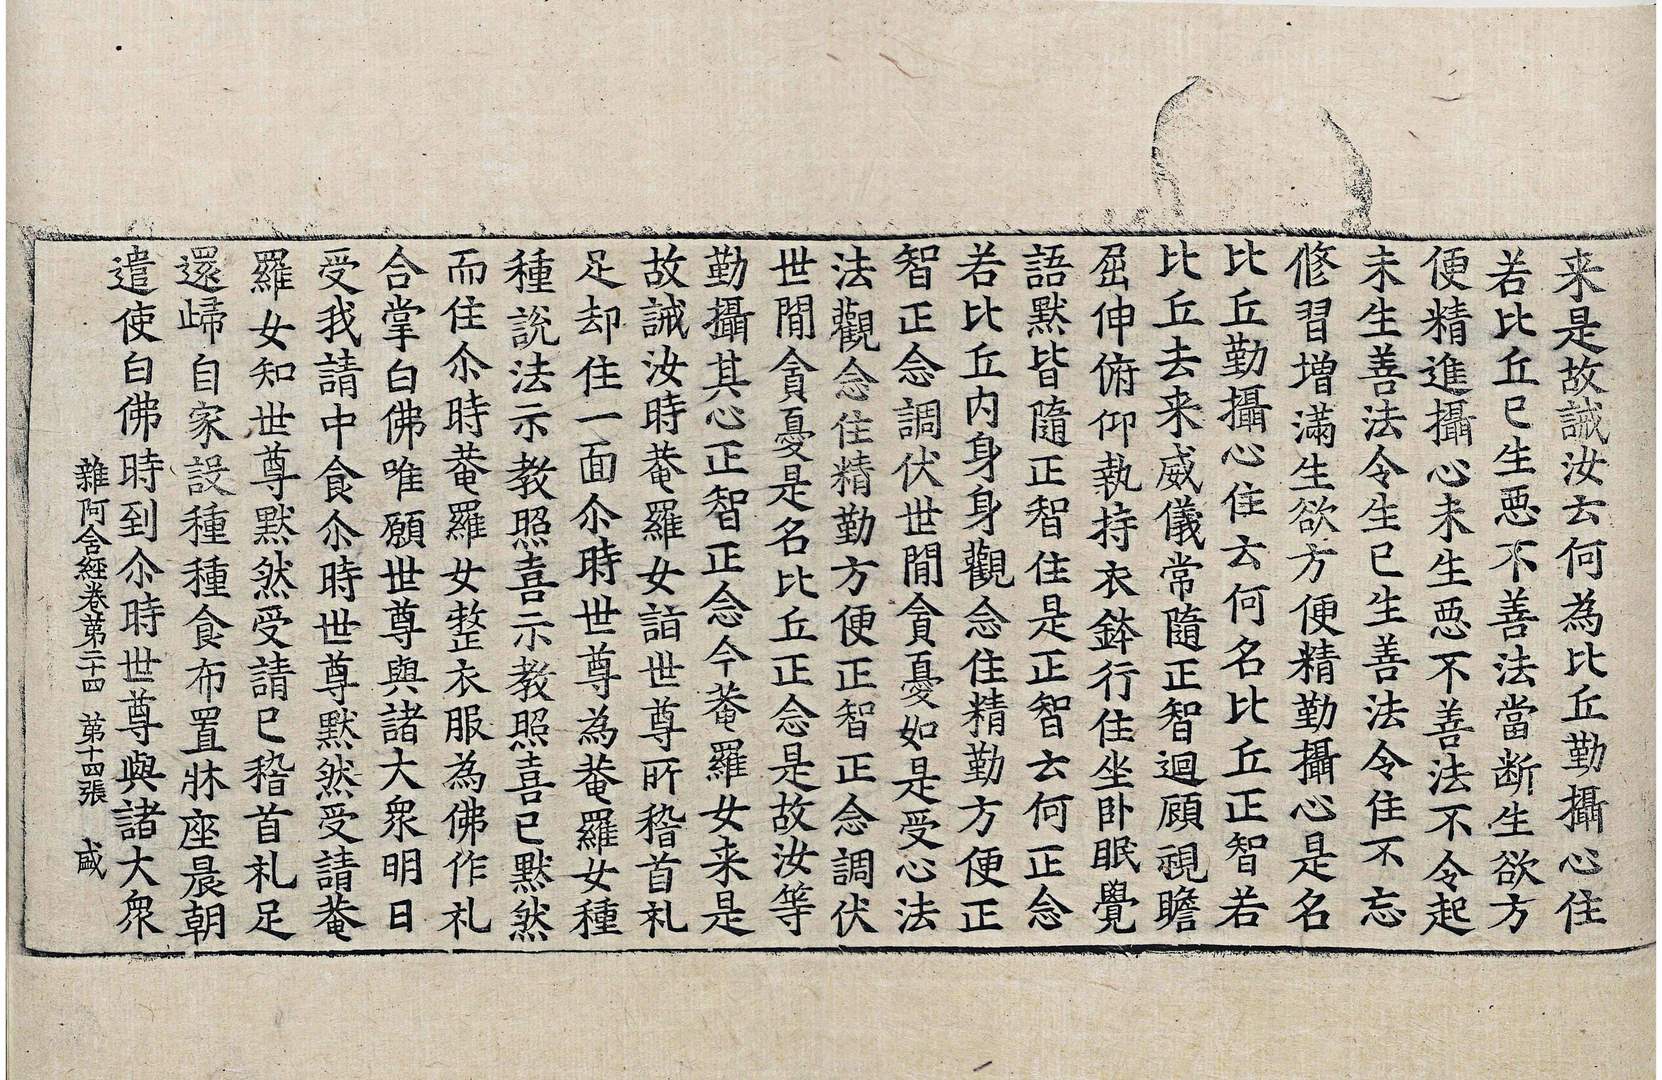 来是故誡汝云何為比丘勤攝心住
若比丘已生惡不善法當断生欲方
便精進攝心未生惡不善法不令起
未生善法令生已生善法令住不忘
修習增滿生欲方便精勤攝心是名
比丘勤攝心住云何名比丘正智若
比丘去来威儀常隨正智迴顧視瞻
屈伸俯仰執持衣鉢行住坐卧眠覺
語黙皆隨正智住是正智云何正念
若比丘内身身觀念住精勤方便正
智正念調伏世間貪憂如是受心法
法觀念住精勤方便正智正念調伏
世間貪憂是名比丘正念是故汝等
勤攝其心正智正念今菴羅女来是
故誡汝時菴羅女詣世尊所稽首礼
足却住一面尒時世尊為菴羅女種
種說法示教照喜示教照喜已黙然
而住尒時菴羅女整衣服為佛作礼
合掌白佛唯願世尊與諸大衆明日
受我請中食尒時世尊黙然受請菴
羅女知世尊黙然受請已稽首礼足
還歸自家設種種食布置牀座晨朝
遣使白佛時到尒時世尊與諸大衆
雜阿含經卷第二十四　第十四張　咸